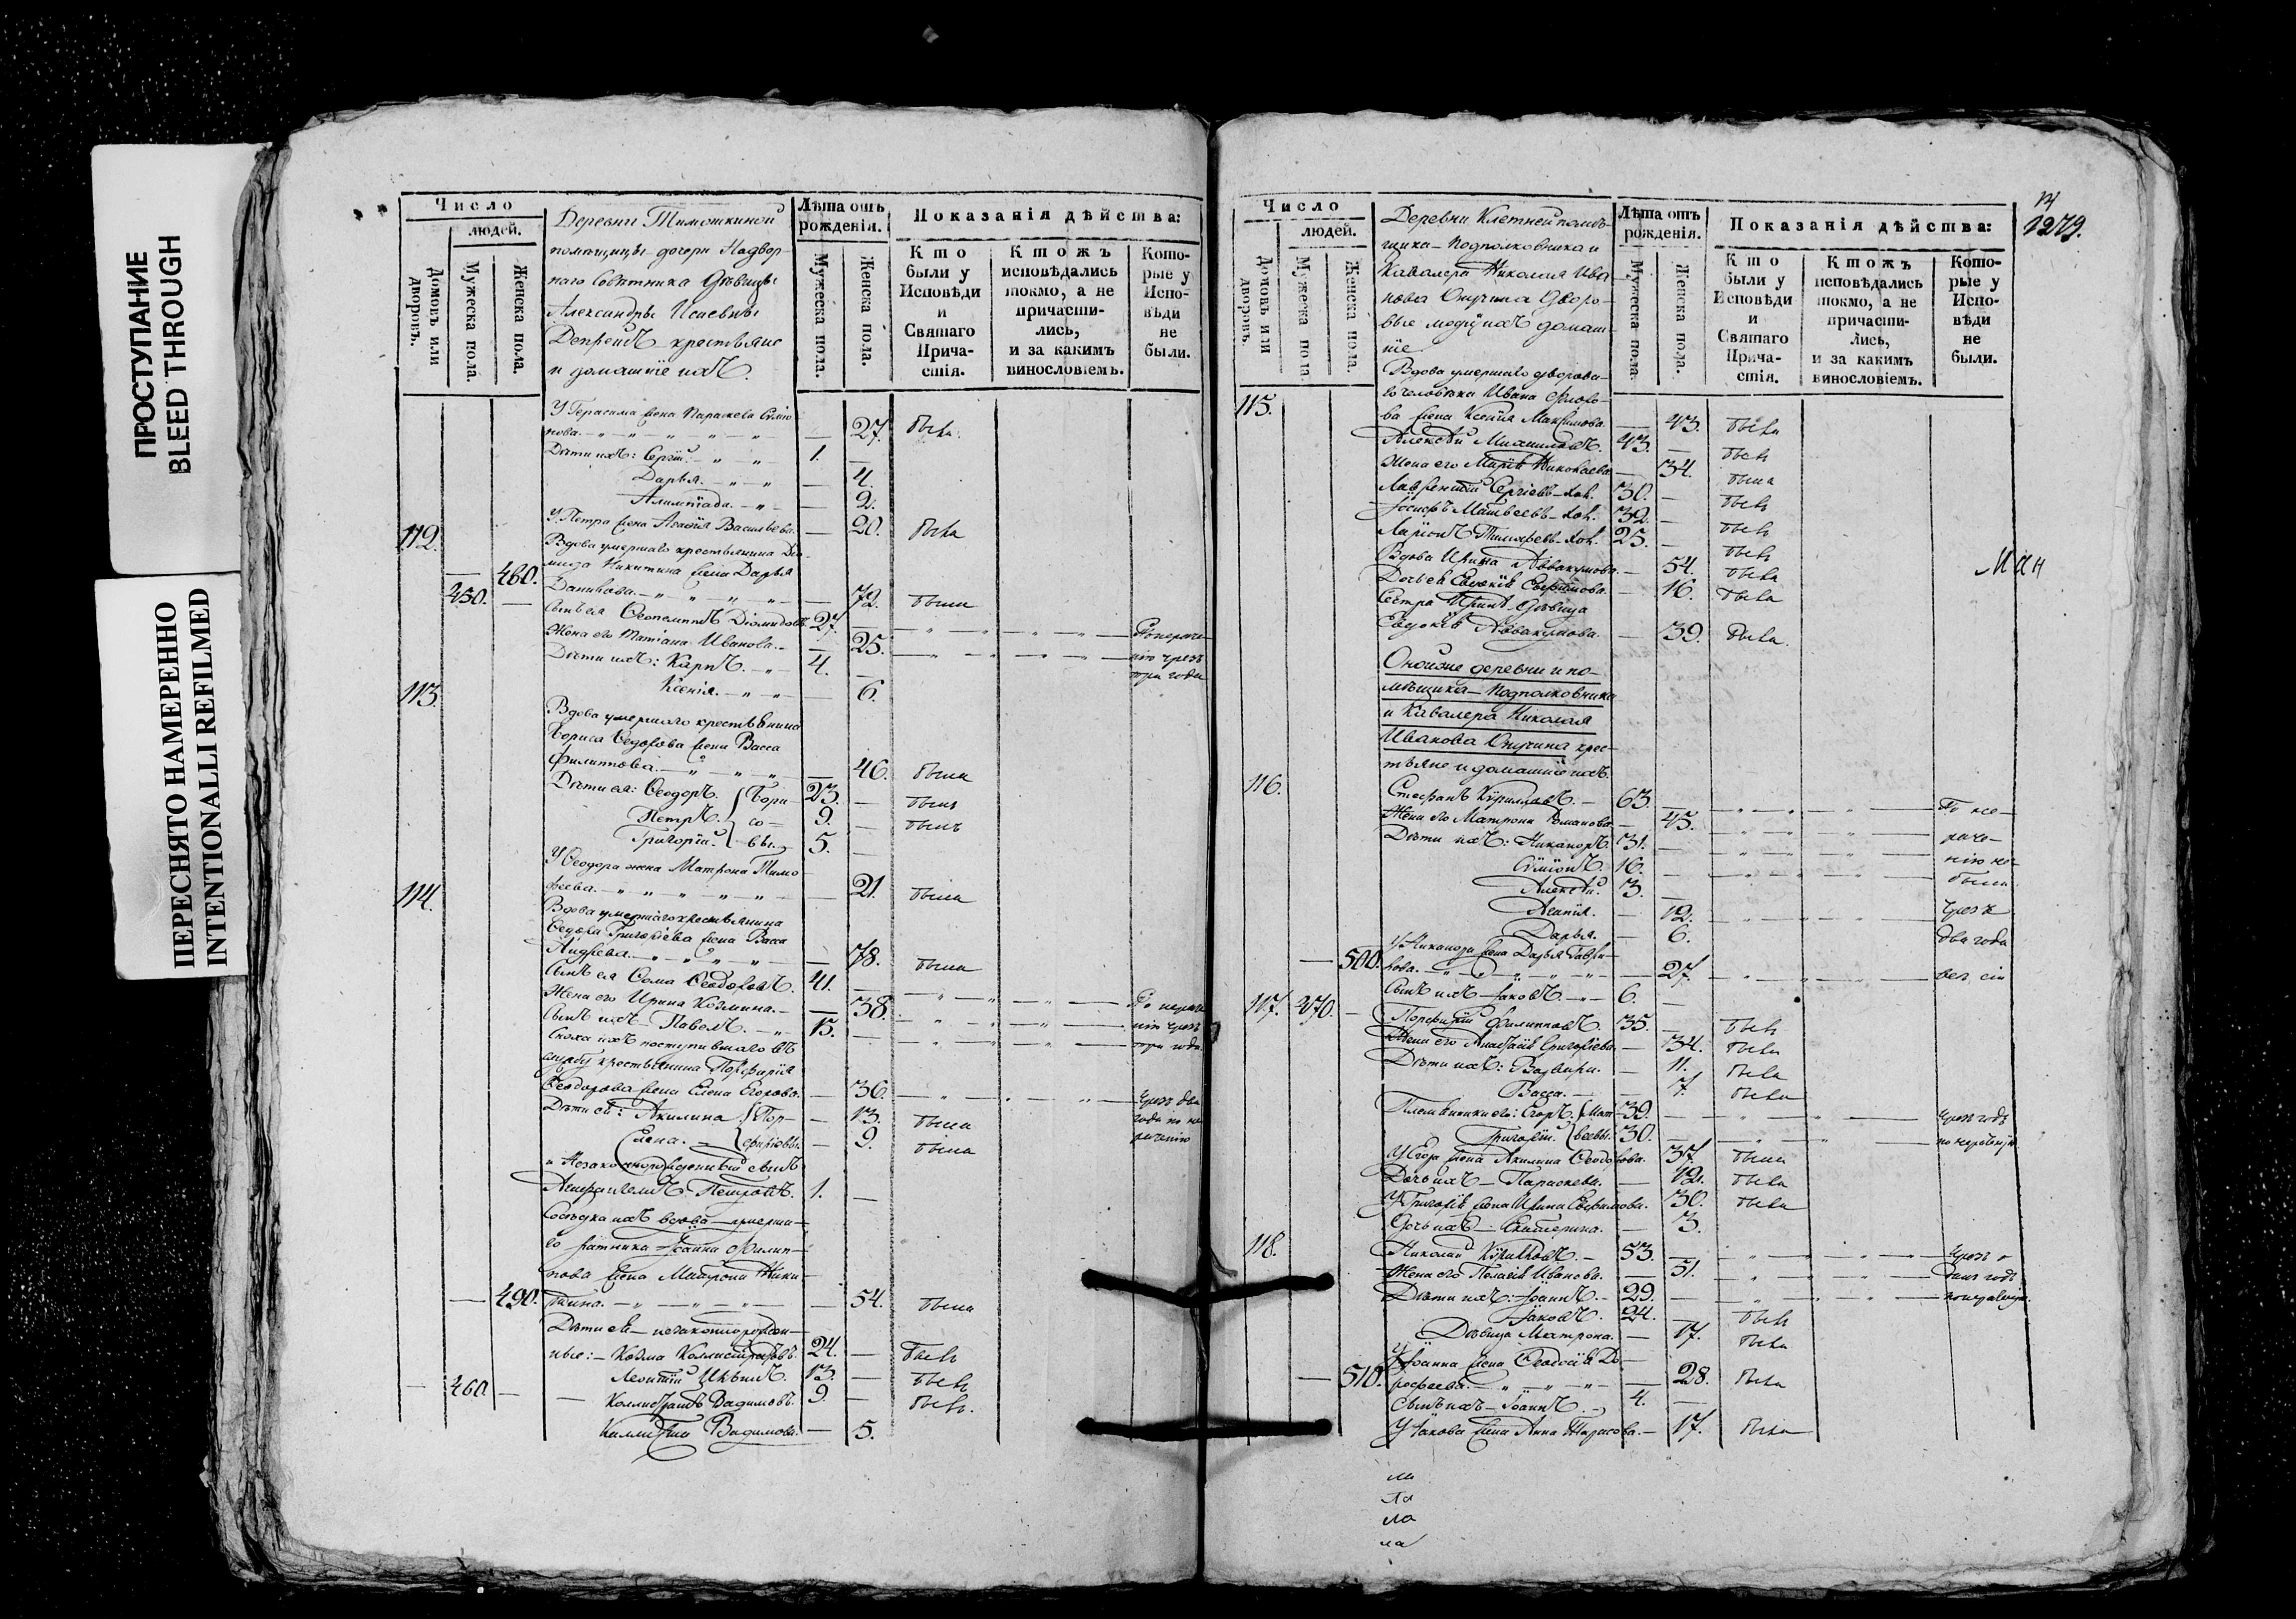 ПРОСТУПАНИЕ
BLEED THROUGH
ПЕРЕСНЯТО НАМЕРЕННО
INTENTIONALLI REFILMED
Число
людей.
Домовъ или дворовъ.
Мужеска пола.
Женска пола.
Деревни Тимошкиной
помѣщицы дочери Надвор-
наго Совѣтника дѣвицы
Александры Исаевны
крестьяне
и домашніе ихъ.
Лѣта отъ рожденія.
Мужеска пола.
Женска пола.
Показанія дѣйства:
Кто были у Исповѣди и Святаго Прича-стія.
Ктожъ исповѣдались токмо, а не причасти-лись, и за какимъ винословіемъ.
Кото-рые у Испо-вѣди не были.
У Герасима жена Параскева Симіо
нова. — 27. была
Дѣти ихъ: Сергій. 1. —
Дарья. — 4.
Алимпіада. — 2.
У Петра жена Агафія Васильева. — 20. была
112. Вдова умершаго крестьянина Діо-
460. мида Никитина жена Дарья
450. — Данилова. — 72. была
Сынъ ея Феопемптъ Діомидовъ. 27. —
Жена его Татіана Иванова. — 25.
Дѣти ихъ: Карпъ. 4. —
три года
Ксенія. — 6.
113. Вдова умершаго крестьянина
Бориса Федорова жена Васса
Филиппова. — 46. была
Дѣти ея: Феодоръ. Бори- 23. — былъ
Петръ. со- 9. — былъ
Григорій. вы. 5. —
У Феодора жена Матрона Тимо
феева. — 21. была
114. Вдова умершаго крестьянина
Федора Григорьева жена Васса
Андреева. — 78. была
Сынъ ея Фома Феодоровъ. 41. —
Жена его Ирина Козмина. — 38.
Сынъ ихъ Павелъ. 15. — три года.
Сноха ихъ поступившаго въ
службу крестьянина Порфирія
Феодорова жена Елена Егорова. — 36. чрезъ два
Дѣти ея: Акилина Пор- — 13. была
Елена. фиріовы. — 9. была
Незаконнорожденный сынъ
Петровъ. 1. —
Сосѣдка ихъ вдова умерша-
го ратника Іоанна Филип-
пова жена Матрона Ники-
— 490. тина. — 54. была
Дѣти ея незаконнорожден-
ные: Козма Каллистратовъ. 24. — былъ
Леонтій 13. — былъ
— 460 — Каллистратъ Вадимовъ. 9. — былъ.
Вадимова. — 5.
14
1279.
Число
людей.
Домовъ или дворовъ.
Мужеска пола.
Женска пола.
Деревни Клетней помѣ-
щика Подполковника и
Кавалера Николая Ива
нова Опучина дворо-
вые люди и ихъ домаш-
ніе
Лѣта отъ рожденія.
Мужеска пола.
Женска пола.
Показанія дѣйства:
Кто были у Исповѣди и Святаго Прича-стія.
Ктожъ исповѣдались токмо, а не причасти-лись, и за какимъ винословіемъ.
Кото-рые у Испо-вѣди не были.
Вдова умершаго дворова-
115. го человѣка Ивана Флоро-
ва жена Ксенія Максимова. — 43. была
Алексѣй Михаиловъ. 43. — былъ
Жена его Марія Николаева — 34. была
Лаврентій Сергіевъ хол. 30. — былъ
Іосифъ Матвеевъ хол. 32. — былъ
Ларіонъ Тимофеевъ хол. 25. — былъ
Вдова Ирина Аввакумова. — 54. была
Дочь ея Евдокія Евфимова. — 16. была
Сестра Ирины дѣвица
Евдокія Аввакумова. — 39. была.
Онойже деревни и по-
мѣщика Подполковника
и Кавалера Николая
Иванова Опучина крес-
тьяне и домашніе ихъ.
116. Стефанъ Кирилловъ. 63. —
Жена его Матрона Романова — 45.
Дѣти ихъ: Никаноръ. 31. —
Симіонъ. 16. —
Алексѣй. 3. —
Агапія. — 12.
Дарья. — 6. два года
У Никанора жена Дарья Гаври-
— 500. лова. — 27.
Сынъ ихъ Іаковъ. 6. —
117. 470. — Порфирій Филипповъ. 35. — былъ
Жена его Анастасія Григорьева. — 34. была
Дѣти ихъ: Варвара. — 11. была
Васса. — 7. была
Племянники его: Егоръ. Мат- 39. — чрезъ годъ
Григорій. веевы. 30. —
У Егора жена Акилина Феодорова. — 37. была
Дочь ихъ Параскева. — 12. была
У Григорія жена Ирина Евфимова. — 30. была
Дочь ихъ: Екатерина. — 3.
118. Николай Кирилловъ. 53. —
Жена его Пелагія Иванова. — 51.
Дѣти ихъ: Іоаннъ. 29. —
Іаковъ. 24. — былъ
Дѣвица Матрона. — 17. была
У Іоанна жена Феодосія До-
— 510. рофеева. — 28. была
Сынъ ихъ Іоаннъ. 4. —
У Іакова жена Анна Тарасова. — 17. была
ла
ла